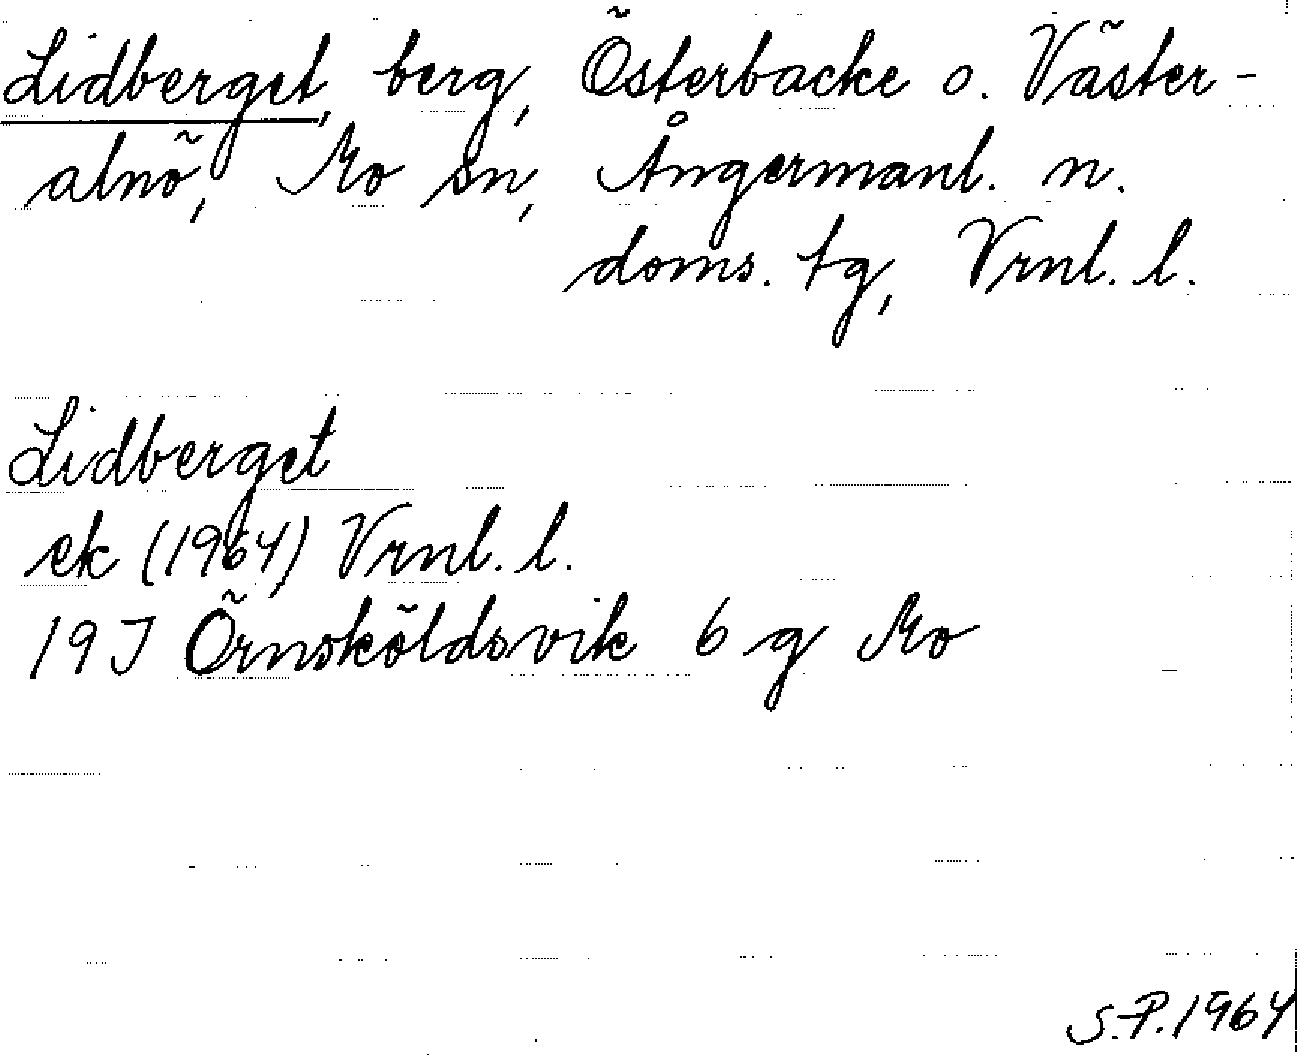 Lidberget, berg, Österbacke o. Väster-
alnö, Mo sn, Ångermanl. n.
doms. tg, Vrnl. l.
Lidberget
ek (1964) Vrnl. l.
19J Örnsköldsvik 6 g Mo
S.P.1964